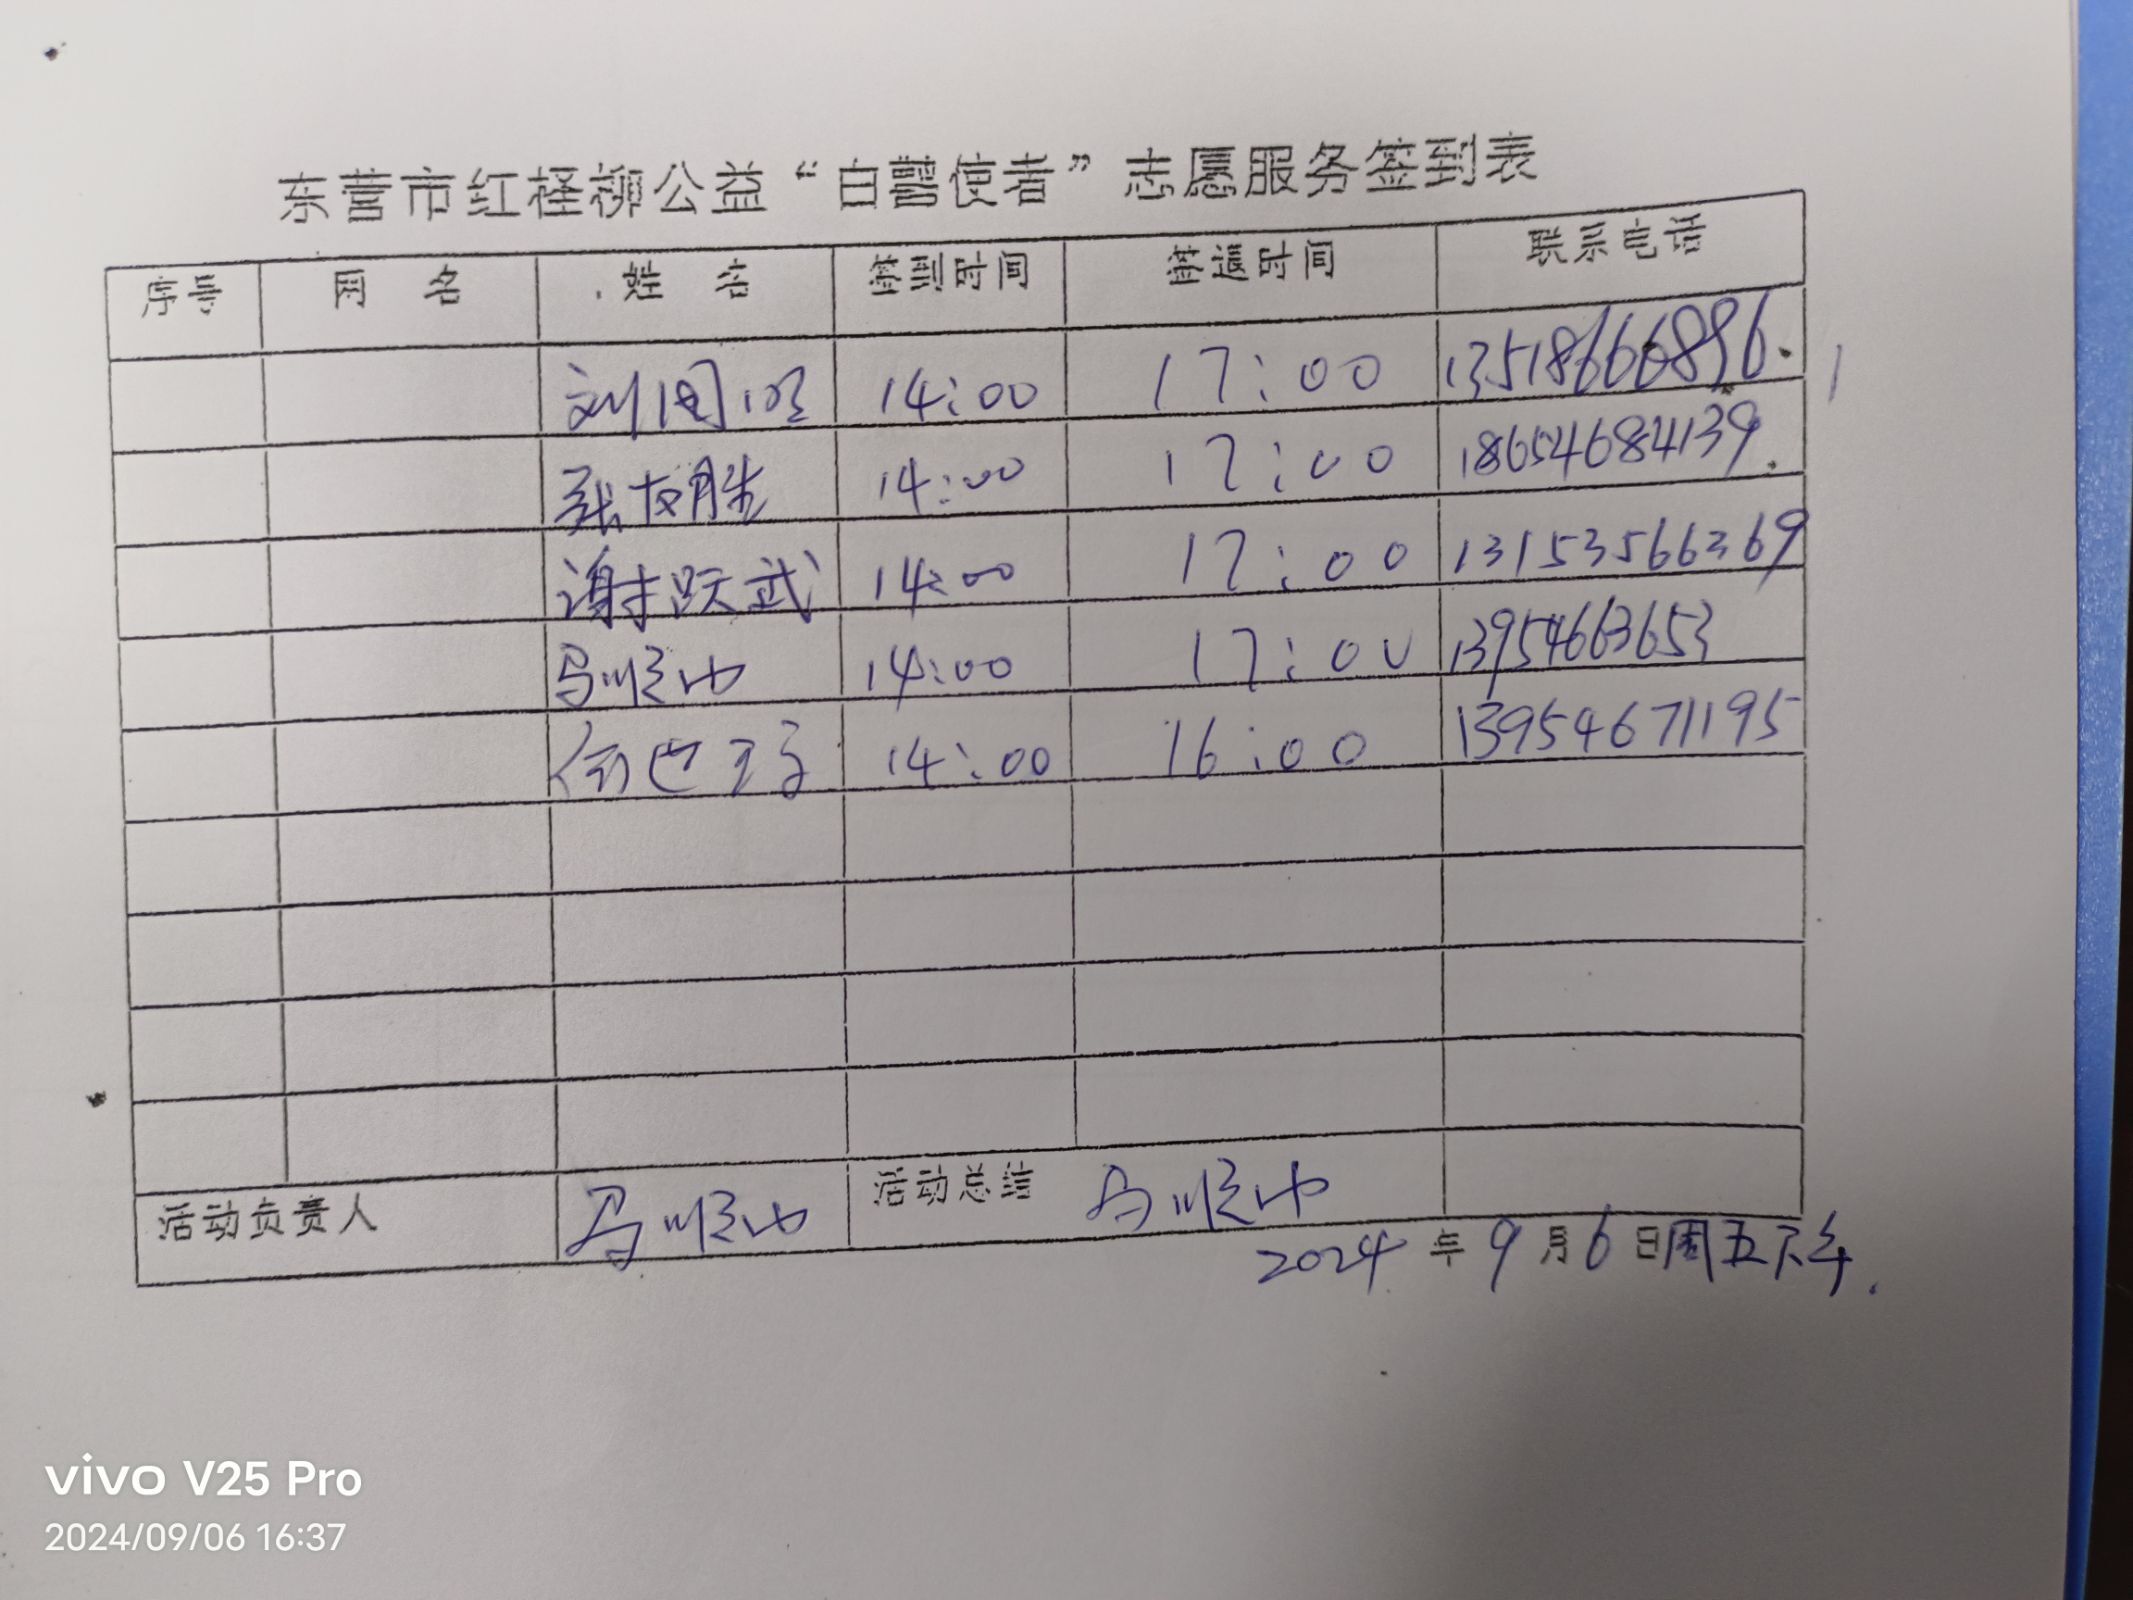 东营市红柽柳公益“白鹭使者”志愿服务签到表
序号 网 名 姓 名 签到时间 签退时间 联系电话
刘国明 14:00 17:00 13518666896
张友胜 14:00 17:00 18654684139
谢跃武 14:00 17:00 13153566369
马顺 14:00 17:00 13954663653
14:00 16:00 13954671195
活动负责人 马顺 活动总结 马顺
2024 年 9 月 6 日周五下午.
vivo V25 Pro
2024/09/06 16:37